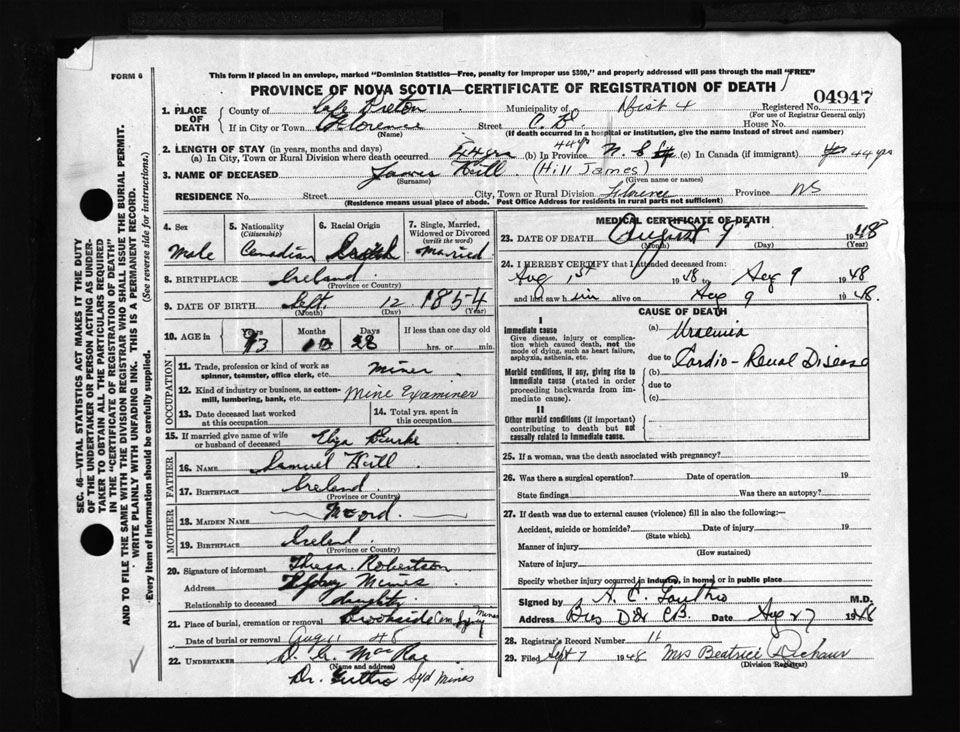 This form if placed in an envelope, marked "Dominion Statistics—Free, penalty for improper use $300," and properly addressed will pass through the mail "FREE"
FORM 6
PROVINCE OF NOVA SCOTIA—CERTIFICATE OF REGISTRATION OF DEATH
04947
1. PLACE OF DEATH County of Cape Breton Municipality of Dist 4 Registered No.
(For use of Registrar General only)
If in City or Town Florence Street C. B. House No.
(Name) (If death occurred in a hospital or institution, give the name instead of street and number)
2. LENGTH OF STAY (in years, months and days)
(a) In City, Town or Rural Division where death occurred 44 yrs (b) In Province 44 yrs N. S. (c) In Canada (if immigrant) 44 yrs
3. NAME OF DECEASED James Hill (Hill James)
(Surname) (Given name or names)
RESIDENCE No. Street City, Town or Rural Division Florence Province NS
(Residence means usual place of abode. Post Office Address for residents in rural parts not sufficient)
4. Sex Male
5. Nationality (Citizenship) Canadian
6. Racial Origin
7. Single, Married, Widowed or Divorced (write the word) Married
8. BIRTHPLACE Ireland
(Province or Country)
9. DATE OF BIRTH Sept. 12 1854
(Month) (Day) (Year)
10. AGE in Years 93 Months 10 Days 28 If less than one day old
hrs. or min.
OCCUPATION
11. Trade, profession or kind of work as spinner, teamster, office clerk, etc. Miner
12. Kind of industry or business, as cotton-mill, lumbering, bank, etc. Mine Examiner
13. Date deceased last worked at this occupation
14. Total yrs. spent in this occupation
15. If married give name of wife or husband of deceased Eliza Burke
FATHER
16. NAME Samuel Hill
17. BIRTHPLACE Ireland
(Province or Country)
MOTHER
18. MAIDEN NAME
19. BIRTHPLACE Ireland
(Province or Country)
20. Signature of informant Theresa Robertson
Address Sydney Mines
Relationship to deceased daughter
21. Place of burial, cremation or removal Brookside Cem Sydney Mines
Date of burial or removal Aug 11 48
22. UNDERTAKER MacRae
(Name and address)
Dr. Guthro Syd Mines
MEDICAL CERTIFICATE OF DEATH
23. DATE OF DEATH August 9 1948
(Month) (Day) (Year)
24. I HEREBY CERTIFY that I attended deceased from:
Aug 1st 1948 to Aug 9 1948
and last saw him alive on Aug 9 1948.
CAUSE OF DEATH
I
Immediate cause
Give disease, injury or complication which caused death, not the mode of dying, such as heart failure, asphyxia, asthenia, etc.
(a) Uraemia
due to Cardio-Renal Disease
Morbid conditions, if any, giving rise to immediate cause (stated in order proceeding backwards from immediate cause).
(b)
due to
(c)
II
Other morbid conditions (if important) contributing to death but not causally related to immediate cause.
25. If a woman, was the death associated with pregnancy?
26. Was there a surgical operation? Date of operation 19
State findings Was there an autopsy?
27. If death was due to external causes (violence) fill in also the following:—
Accident, suicide or homicide? Date of injury 19
(State which)
Manner of injury
(How sustained)
Nature of injury
Specify whether injury occurred in industry, in home, or in public place
Signed by A. C. Guthro M.D.
Address Date Aug 27 1948
28. Registrar's Record Number 11
29. Filed Sept 7 1948 Mrs Beatrice
(Division Registrar)
SEC. 46—VITAL STATISTICS ACT MAKES IT THE DUTY
OF THE UNDERTAKER OR PERSON ACTING AS UNDER-
TAKER TO OBTAIN ALL THE PARTICULARS REQUIRED
IN THE "CERTIFICATE OF REGISTRATION OF DEATH"
AND TO FILE THE SAME WITH THE DIVISION REGISTRAR WHO SHALL ISSUE THE BURIAL PERMIT.
WRITE PLAINLY WITH UNFADING INK. THIS IS A PERMANENT RECORD.
Every item of information should be carefully supplied. (See reverse side for instructions.)